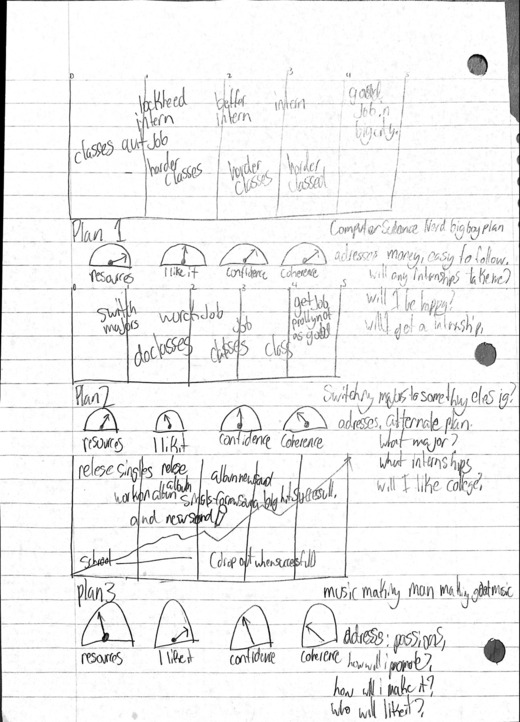 0 1 2 3 4 5
lockheed better intern good
intern intern Job in
big city.
classes quit Job
harder harder harder
classes classes classed
Plan 1 Computer Science Nerd big boy plan
resoures I like it confidence coherence
adresses money, easy to follow.
will any internships take me?
will I be happy?
will I get a internship,
0 1 2 3 4 5
switch work Job Job get Job
majors prolly not
as good
do classes classes class
Plan 2 Switching majors to something else ig?
resoures I like it confidence coherence
adresses, alternate plan.
what major?
what internships
will I like college?
relese singles relese album new sound
album
work on album singles big hit successfull,
and new sound
School (drop out when successful)
plan 3 music making man making good music
resoures I like it confidence coherence
adresses: passions,
how will i promote?,
how will i make it?
who will like it?,